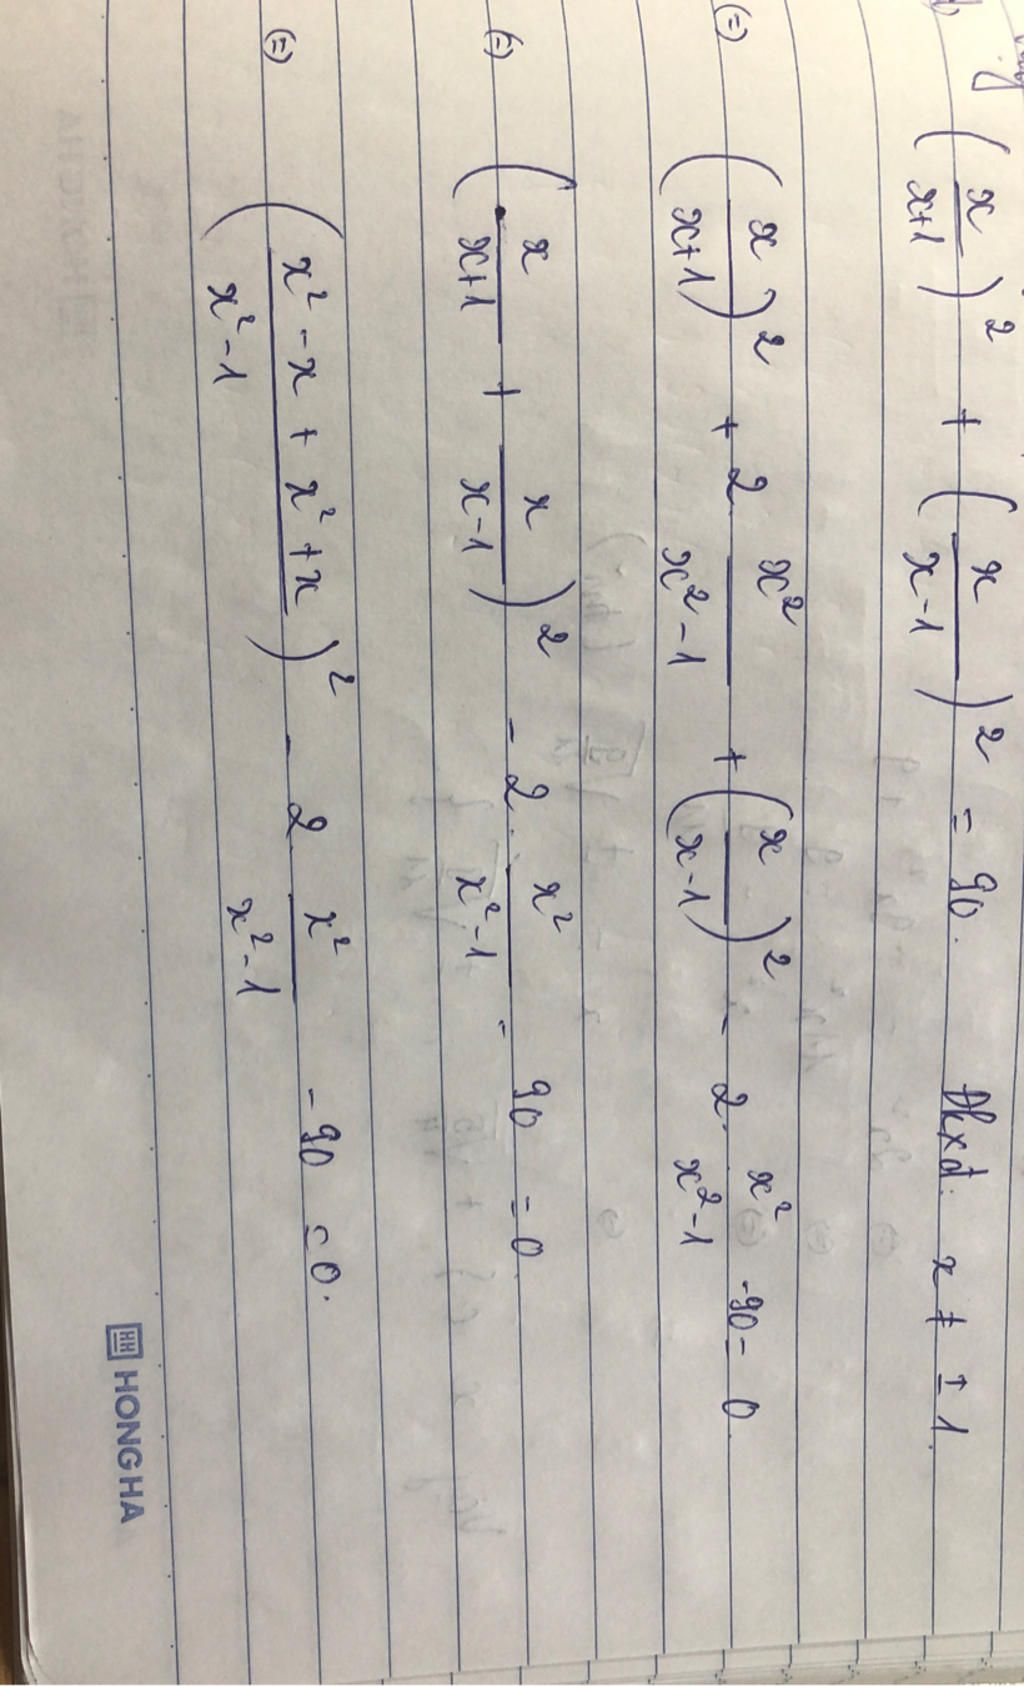 (x/x+1)² + (x/x-1)² = 90. Đkxđ: x ≠ ±1.
(=) (x/x+1)² + 2. x²/x²-1 + (x/x-1)² - 2. x²/x²-1 -90 = 0.
(=) (x/x+1 + x/x-1)² - 2. x²/x²-1 - 90 = 0.
(=) (x²-x+x²+x/x²-1)² - 2. x²/x²-1 - 90 = 0.
HH HONG HA